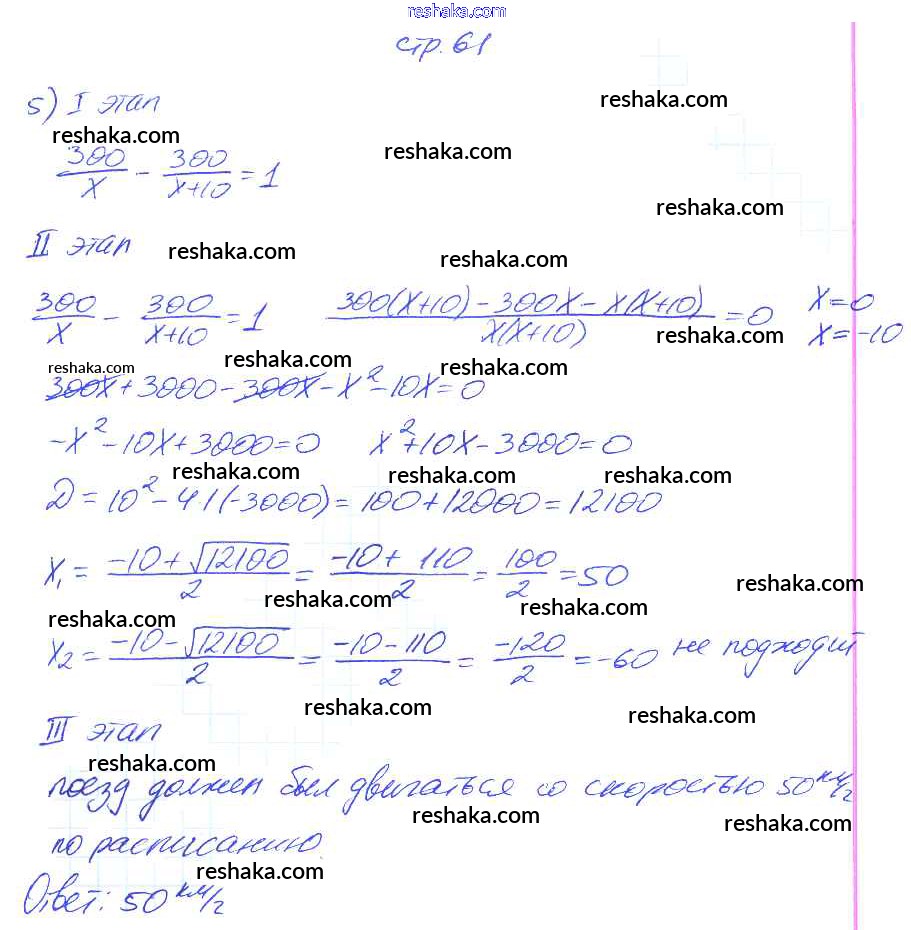 reshaka.com
стр. 61
5) I этап
reshaka.com
reshaka.com
reshaka.com
300/x - 300/(x+10) = 1
reshaka.com
II этап reshaka.com
reshaka.com
300/x - 300/(x+10) = 1 (300(x+10) - 300x - x(x+10))/(x(x+10)) = 0 x=0
x=-10
reshaka.com
reshaka.com reshaka.com reshaka.com
300x + 3000 - 300x - x² - 10x = 0
-x² - 10x + 3000 = 0 x² + 10x - 3000 = 0
reshaka.com reshaka.com reshaka.com
D = 10² - 4·1(-3000) = 100 + 12000 = 12100
x₁ = (-10 + √12100)/2 = (-10 + 110)/2 = 100/2 = 50
reshaka.com
reshaka.com reshaka.com
reshaka.com
x₂ = (-10 - √12100)/2 = (-10 - 110)/2 = -120/2 = -60 не подходит
reshaka.com reshaka.com
III этап
reshaka.com
поезд должен был двигаться со скоростью 50 км/ч
reshaka.com reshaka.com
по расписанию.
reshaka.com
Ответ: 50 км/ч